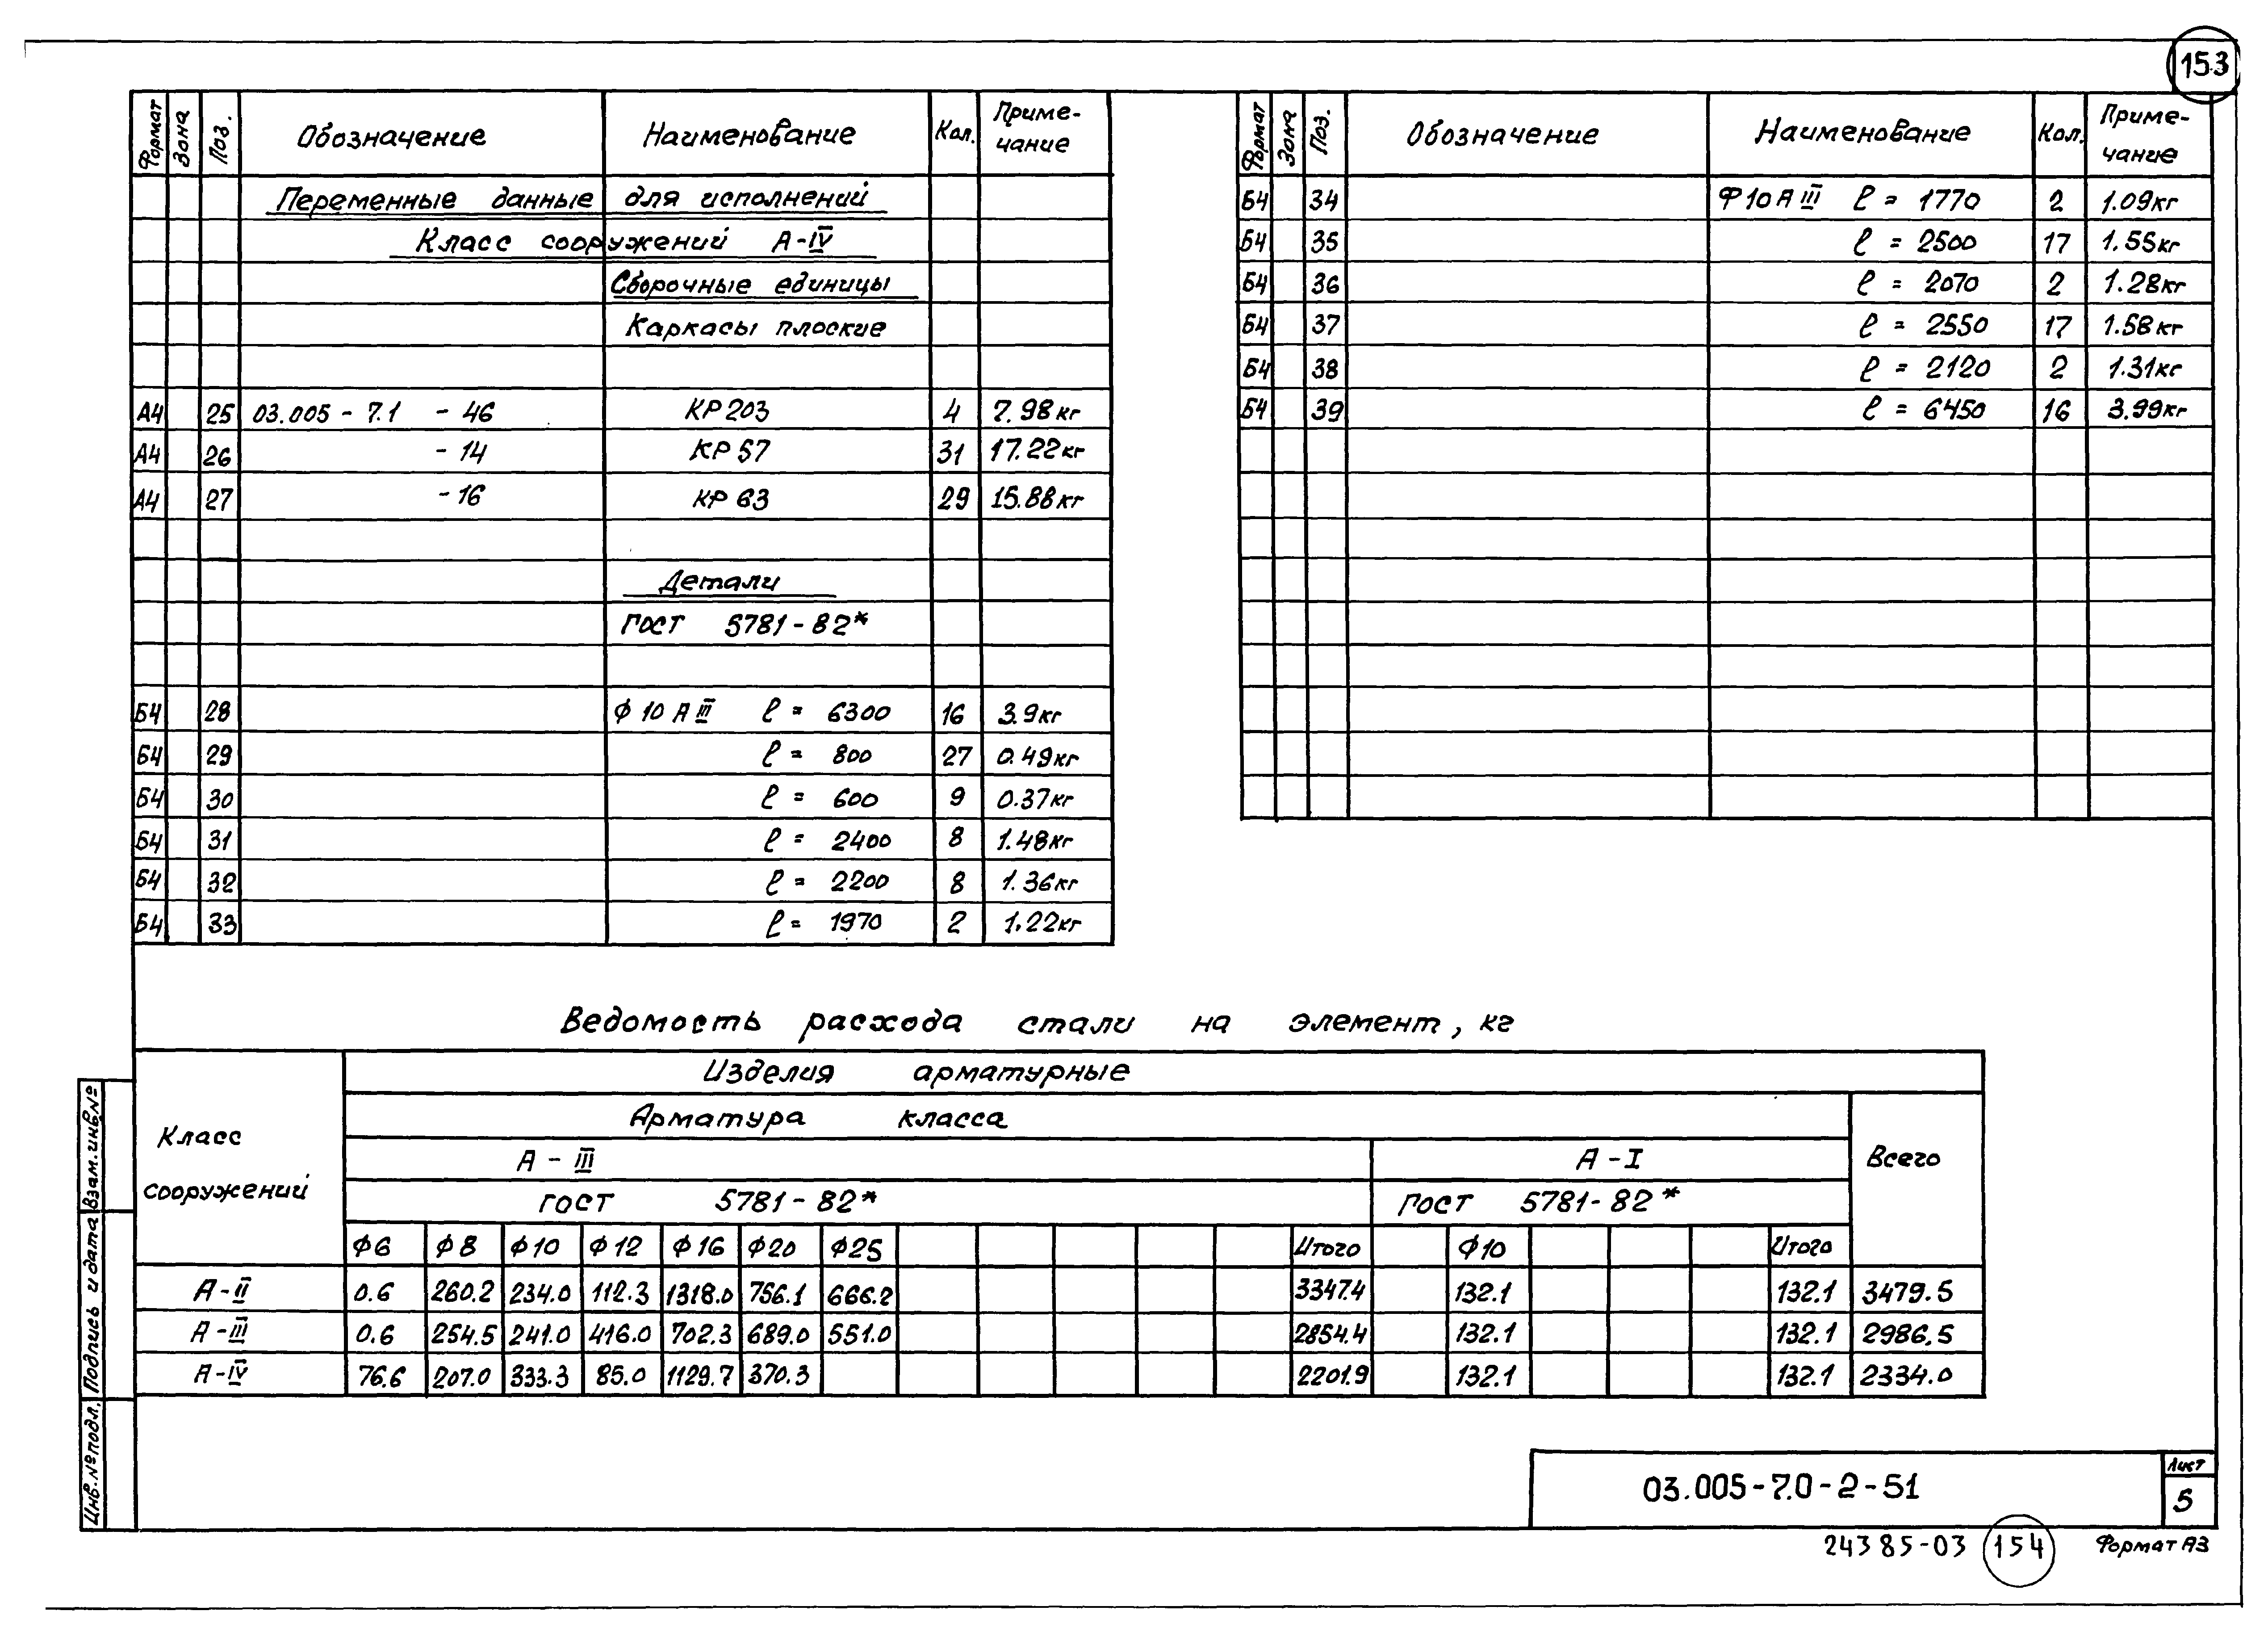 153
Формат Зона Поз. Обозначение Наименование Кол. Приме-чание
Переменные данные для исполнений
Класс сооружений А-IV
Сборочные единицы
Каркасы плоские
А4 25 03.005 - 7.1 - 46 КР203 4 7.98кг
А4 26 - 14 КР57 31 17.22кг
А4 27 - 16 КР63 29 15.88кг
Детали
ГОСТ 5781-82*
Б4 28 Ф 10 А III ℓ = 6300 16 3.9кг
Б4 29 ℓ = 800 27 0.49кг
Б4 30 ℓ = 600 9 0.37кг
Б4 31 ℓ = 2400 8 1.48кг
Б4 32 ℓ = 2200 8 1.36кг
Б4 33 ℓ = 1970 2 1.22кг
Формат Зона Поз. Обозначение Наименование Кол. Приме-чание
Б4 34 Ф10А III ℓ = 1770 2 1.09кг
Б4 35 ℓ = 2500 17 1.55кг
Б4 36 ℓ = 2070 2 1.28кг
Б4 37 ℓ = 2550 17 1.58кг
Б4 38 ℓ = 2120 2 1.31кг
Б4 39 ℓ = 6450 16 3.99кг
Ведомость расхода стали на элемент, кг
Класс сооружений
Изделия арматурные
Арматура класса
Всего
А - III А - I
ГОСТ 5781-82* ГОСТ 5781-82*
Ф6 Ф8 Ф10 Ф12 Ф16 Ф20 Ф25 Итого Ф10 Итого
А-II 0.6 260.2 234.0 112.3 1318.0 756.1 666.2 3347.4 132.1 132.1 3479.5
А-III 0.6 254.5 241.0 416.0 702.3 689.0 551.0 2854.4 132.1 132.1 2986.5
А-IV 76.6 207.0 333.3 85.0 1129.7 370.3 2201.9 132.1 132.1 2334.0
Взам.инв.№
Подпись и дата
Инв.№ подл.
03.005-7.0-2-51
Лист
5
24385-03 154 Формат А3